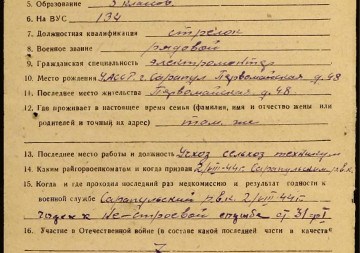 5. Образование 5 классов
6. На ВУС 134
7. Должностная квалификация стрелок
8. Военное звание рядовой
9. Гражданская специальность электромонтер
10. Место рождения УАССР г. Сарапул Первомайская д. 48
11. Последнее место жительства Первомайская д. 48.
12. Где проживает в настоящее время семья (фамилия, имя и отчество жены или
родителей и точный их адрес) там же
13. Последнее место работы и должность Учхоз сельхоз техникум
14. Каким райгорвоенкоматом и когда призван 2/VIII-44г. Сарапульским рвк
15. Когда и где проходил последний раз медкомиссию и результат годности к
военной службе Сарапульский рвк 2/VIII-44г
Годен к не-строевой службе от 31
16. Участие в Отечественной войне (в составе какой последней части и в качестве